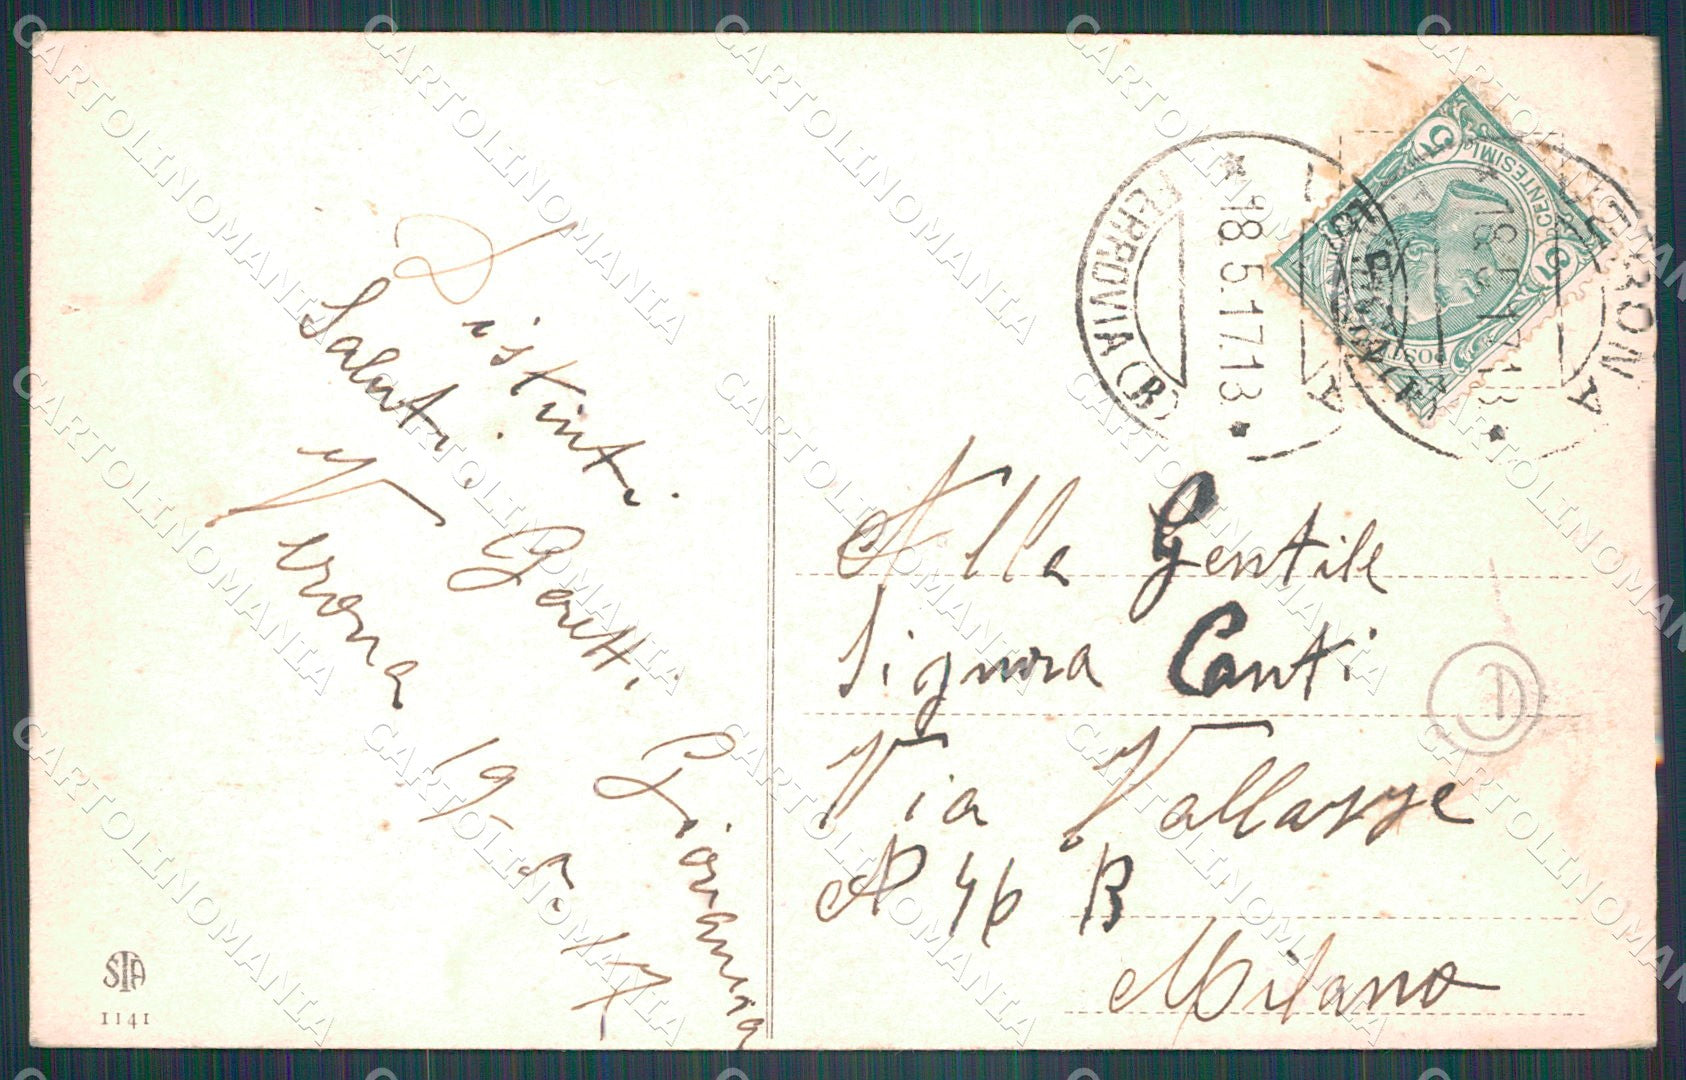 Distinti
Saluti.
Geretti Giovanna
Verona 19-5-17
Alla Gentile
Signora Conti
Via Vallazze
N 46 B
Milano
FERROVIA (B)
* 18.5.17.13 *
* 18.5.17.13 *
VERONA
5 CENTESIMI 5
POSTE
STA
1141
CARTOLINOMANIA